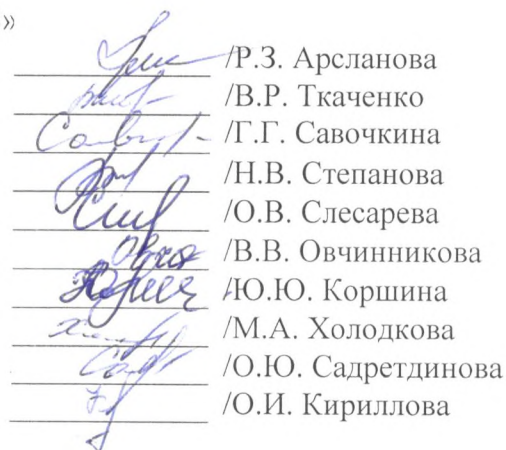 »
/Р.З. Арсланова
/В.Р. Ткаченко
/Г.Г. Савочкина
/Н.В. Степанова
/О.В. Слесарева
/В.В. Овчинникова
/Ю.Ю. Коршина
/М.А. Холодкова
/О.Ю. Садретдинова
/О.И. Кириллова